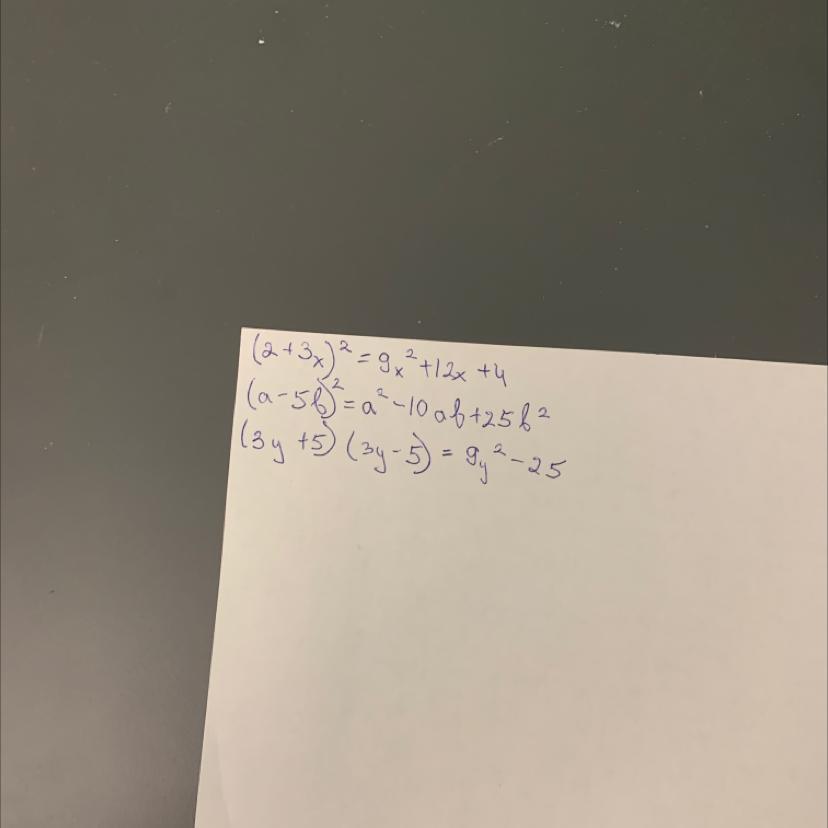 (2+3x)² = 9x² + 12x + 4
(a - 5b)² = a² - 10ab + 25b²
(3y + 5) (3y - 5) = 9y² - 25